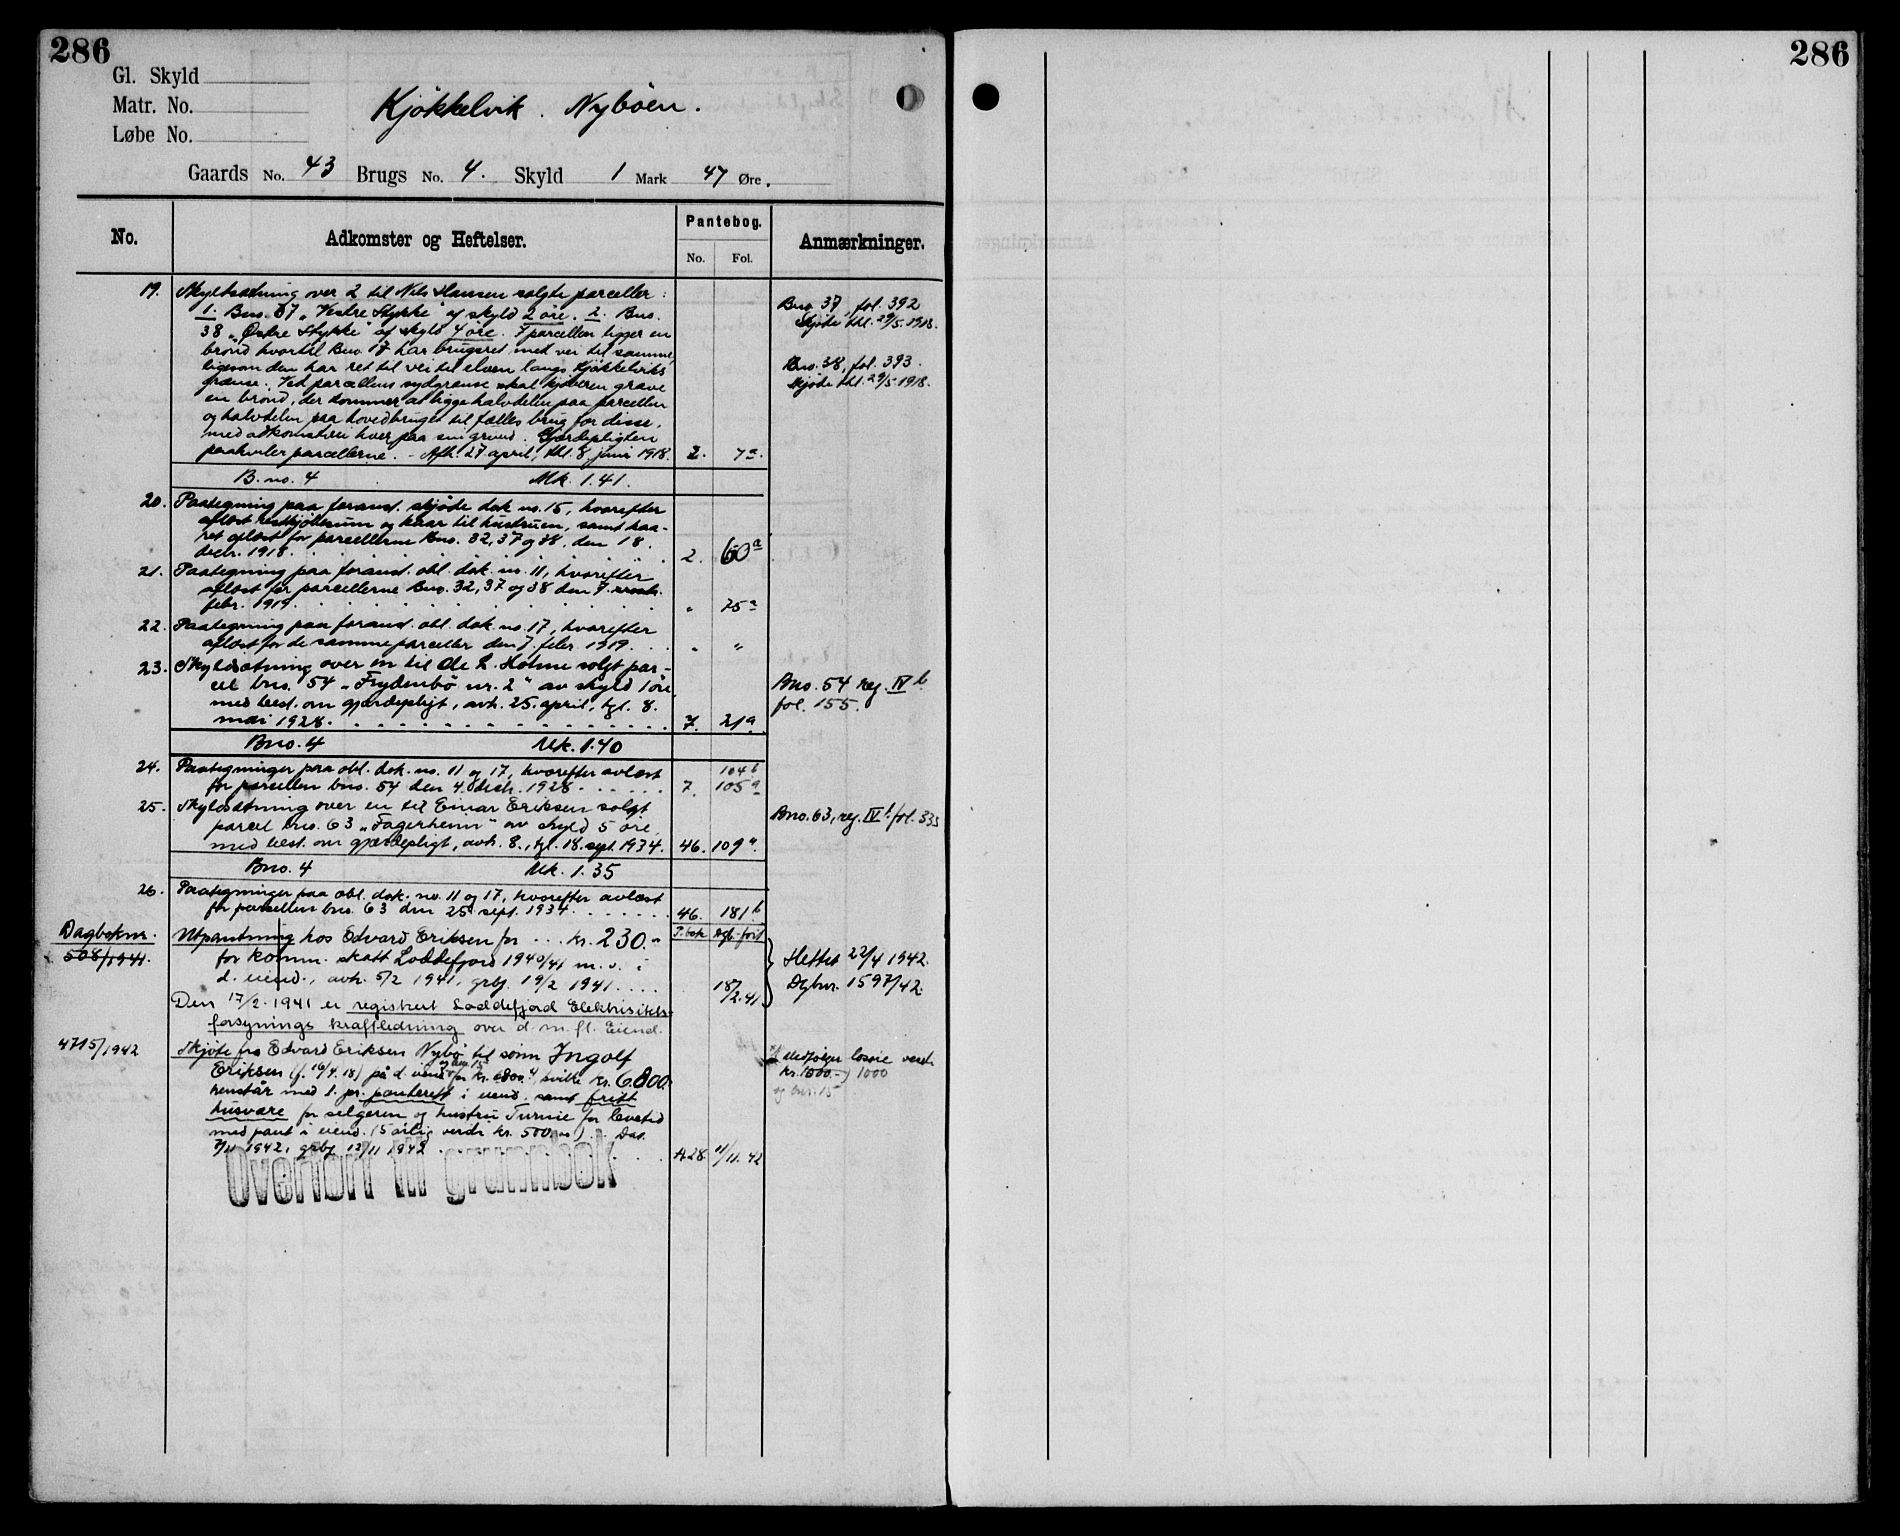 286
286
Gl. Skyld
Matr. No.
Løbe No.
Kjøkkelvik. Nybøen.
Gaards No. 43 Brugs No. 4. Skyld 1 Mark 47 Øre.
No. Adkomster og Heftelser. Pantebog. Anmærkninger.
No. Fol.
19. Skyldsætning over 2 til Nils Hansen solgte parceller:
1. Bno. 37 „Vestre Stykke" af skyld 2 øre. 2. Bno.
38 „Østre Stykke" af skyld 4 øre. I parcellen ligger en
brønd hvortil Bno. 17 har brugsret med vei til samme,
ligesom den har ret til vei til elven langs Kjøkkelviks
grænse. Ved parcellens sydgrænse skal kjøberen grave
en brønd, der kommer at ligge halvdelen paa parcellen
og halvdelen paa hovedbruget til fælles brug for disse,
med adkomstvei hver paa sin grund. Gjærdepligten
paahviler parcellerne. - Afh. 27 april, thl. 8. juni 1918. 2. 7a.
Bno. 37, fol. 392
Skjøde thl. 29/5 1918.
Bno. 38, fol. 393.
Skjøde thl. 29/5 1918.
B. no. 4 Mk. 1.41.
20. Paategning paa forand. skjøde dok no. 15, hvorefter
afløst restkjøbesum og kaar til hustruen, samt kaa-
ret afløst for parcellerne Bno. 32, 37 og 38, den 18.
decbr. 1918. 2. 60a
21. Paategning paa forand. obl. dok. no. 11, hvorefter
afløst for parcellerne Bno. 32, 37 og 38 den 7.
febr. 1919. " 75a
22. Paategning paa forand. obl. dok. no. 17, hvorefter
afløst for de samme parceller den 7. febr. 1919. " "
23. Skyldsætning over en til Ole L. Holme solgt par-
cel bno. 54 „Frydenbø nr. 2" av skyld 1 øre
med best. om gjærdepligt, avh. 25. april, tgl. 8.
mai 1928. 7. 21a.
Bno. 54 reg. IV b
fol. 155.
Bno. 4 Mk. 1.40
24. Paategninger paa obl. dok. no. 11 og 17, hvorefter avløst 104b
for parcellen bno. 54 den 4. decbr. 1928. 7. 105a
25. Skyldsætning over en til Einar Eriksen solgt
parcel bno. 63 „Fagerheim" av skyld 5 øre,
med best. om gjærdepligt, avh. 8., tgl. 18. sept. 1934. 46. 109a.
Bno. 63, reg. IV b fol. 335
Bno. 4 Mk. 1.35
26. Paategninger paa obl. dok. no. 11 og 17, hvorefter avløst
for parcellen bno. 63 den 25. sept. 1934. 46. 181b
Dagboknr. P.bok Dgb.-ført
508/1941. Utpantning hos Edvard Eriksen for ... kr. 230.-
for komm. skatt Loddefjord 1940/41 m.v. i
d. eiend., avh. 5/2 1941, grbf. 19/2 1941. 18/2.41
Slettet 22/4 1942.
Dgbnr. 1597/42.
Den 17/2. 1941 er registrert Loddefjord Elektrisitets-
forsynings kraftledning over d. m. fl. Eiend.
4715/1942 Skjøte fra Edvard Eriksen Nybø til sønn Ingolf
Eriksen (f. 16/4. 18) på d. eiend. for kr. 6800.- hvilke kr. 6800.
henstår med 1. pr. panterett i eiend. samt fritt
husvære for selgeren og hustru Turine for levetid
med pant i eiend. (5 årlig verdi kr. 500.oo). Dat.
7/11 1942, grbf 12/11 1942. A28. 11/11.42
x/ Medfølger løsøre verdi
kr. 1000.-) 1000
og bnr. 15
Overført til grunnbok